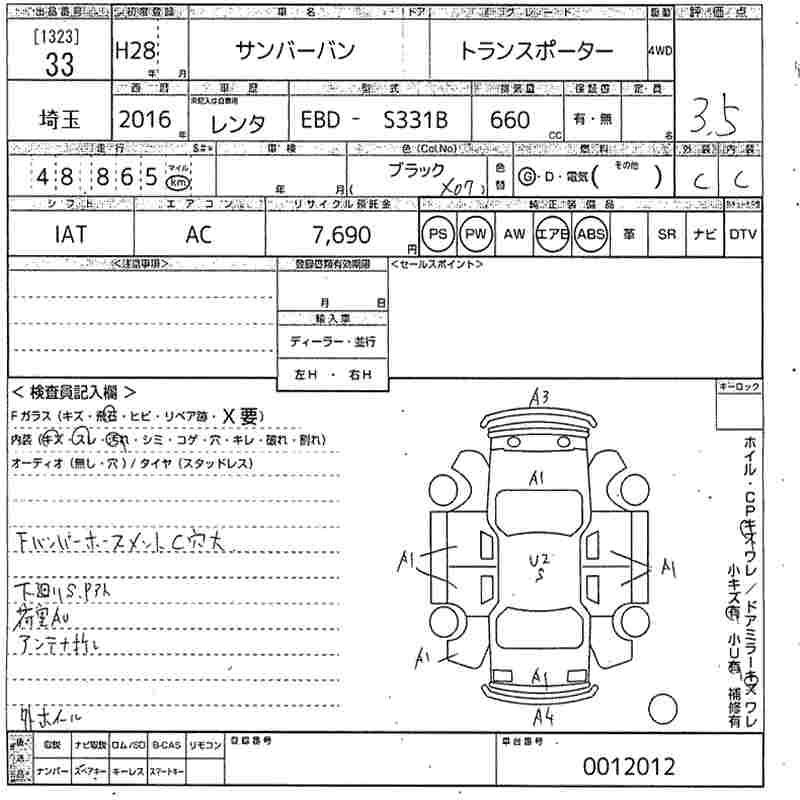 出品番号 初度登録 車名 ドア グレード 駆動 評価点
[1323] 33 H28 年 月 サンバーバン トランスポーター 4WD 3.5
西暦 車歴 型式 排気量 保証書 定員
未記入は自家用
埼玉 2016 年 レンタ EBD - S331B 660 CC 有・無 名
走行 S#* 車検 色(Col.No) 燃料 外装 内装
48,865 マイル km 年 月 ブラック (X07) 色替 G・D・電気( その他 ) C C
シフト エアコン リサイクル預託金 純正装備品
IAT AC 7,690 円 PS PW AW エアB ABS 革 SR ナビ DTV
<注意事項> 登録書類有効期限 <セールスポイント>
月 日
輸入車
ディーラー・並行
左H・右H
< 検査員記入欄 > キーロック
Fガラス(キズ・飛石・ヒビ・リペア跡・X要)
内装(キズ・スレ・汚れ・シミ・コゲ・穴・キレ・破れ・割れ)
オーディオ(無し・穴)/タイヤ(スタッドレス)
Fバンパーホースメント C穴大
下廻りS.Pアト
荷室AU
アンテナ折レ
外ホイル
A3
A1
A1 U2 S A1
A1 A1
A4
ホイル・CPキズワレ/ドアミラーキズワレ
小キズ有 小U有 補修有
後送品 取説 ナビ取説 ロム/SD B-CAS リモコン 登録番号 車台番号
ナンバー スペアキー キーレス スマートキー 0012012